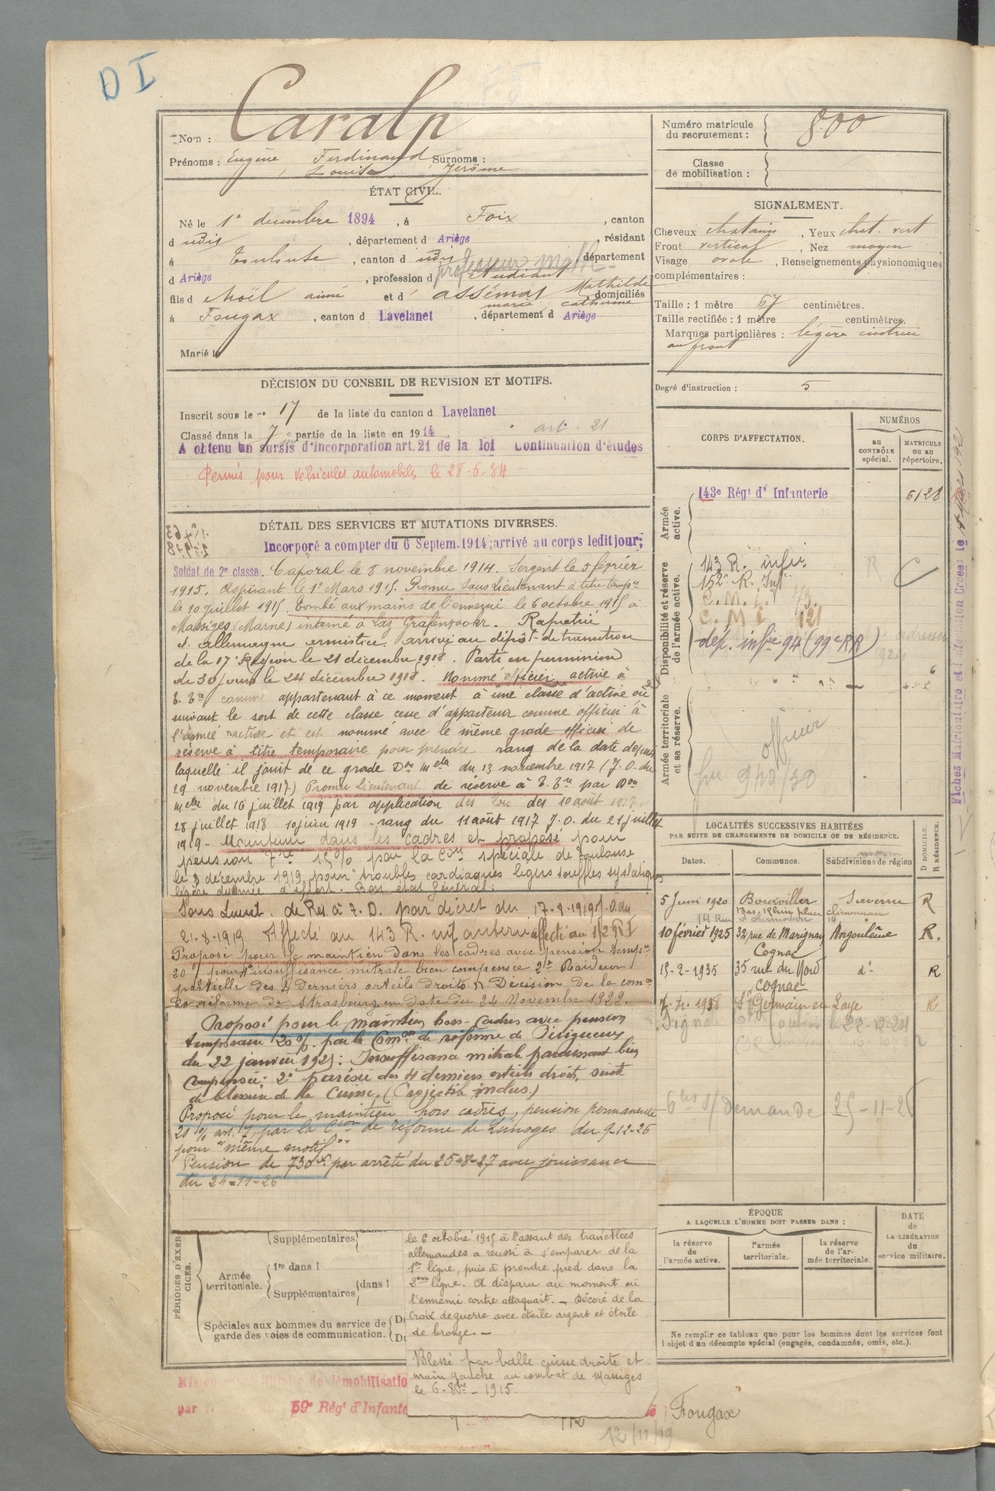 D I
Nom : Caralp
Prénoms : Eugène Ferdinand Surnoms :
Louis Jérôme
ÉTAT CIVIL.
Né le 1er décembre 1894, à Foix, canton
dudit, département d Ariège, résidant
à Toulouse, canton dudit, département
d Ariège, profession d étudiant professeur math.
fils d Noël aimé et d' assémat Mathilde
marie catherine, domiciliés
à Fougax, canton d Lavelanet, département d Ariège
Marié le
DÉCISION DU CONSEIL DE REVISION ET MOTIFS.
Inscrit sous le no 17 de la liste du canton d Lavelanet
Classé dans la 7e partie de la liste en 1914. art. 21
A obtenu un sursis d'incorporation art. 21 de la loi Continuation d'études
Permis pour véhicules automobiles le 28-6-34
DÉTAIL DES SERVICES ET MUTATIONS DIVERSES.
Incorporé a compter du 6 Septem. 1914; arrivé au corps ledit jour;
Soldat de 2e classe. Caporal le 8 novembre 1914. Sergent le 5 février
1915. Aspirant le 1er Mars 1915. Promu Sous Lieutenant à titre temp.re
le 10 juillet 1915. Tombé aux mains de l'ennemi le 6 octobre 1915 à
Massiges (Marne) interné à Lag Grafenwohr. Rapatrié
d'allemagne armistice. arrivé au dépôt de transition
de la 17e Région le 21 décembre 1918. Parti en permission
de 30 jours le 24 décembre 1918. Nommé officier active à
T. Tre comme appartenant à ce moment à une classe d'active ou
suivant le sort de cette classe cesse d'appartenir comme officier à
l'armée active et est nommé avec le même grade officier de
réserve à titre temporaire pour prendre rang de la date depuis
laquelle il jouit de ce grade Don mlle du 13 novembre 1917 (J.O. du
29 novembre 1917) Promu lieutenant de réserve à T. Tre par Don
mlle du 16 juillet 1919 par application des lois des 10 août 1917,
28 juillet 1918 10 juin 1919 - rang du 11 août 1917 J.O. du 21 juillet
1919 - Maintenu dans les cadres et proposé pour
pension Tre 15% par la Con spéciale de Toulouse
le 3 décembre 1919 pour troubles cardiaques légers souffles systoliques
légère dyspnée d'effort. Bon état général.
Sous Lieut. de Res. à T. D. par décret du 17-8-1919 J.O. du
21-8-1919 Affecté au 143 R. inf
Proposé pour le maintien dans les cadres avec pension temp.re
20% pour 1° insuffisance mitrale bien compensée 2° Raideur
partielle des 4 derniers orteils droits. Décision de la com.
de réforme de Strasbourg en date du 24 Novembre 1922.
Proposé pour le maintien hors-Cadres avec pension
temporaire 20%. par la Com.on de réforme de Périgueux
du 22 janvier 1925: Insuffisance mitrale paraissant bien
compensée; 2° parésie des 4 derniers orteils droits, suite
de blessure de la Cuisse. (Projectile inclus.)
Proposé pour le maintien hors cadres, pension permanente
20% par la Con de réforme de Limoges du 9-12-26
pour "même motif"
Pension de 730f par arrêté du 25-8-27 avec jouissance
du 24-11-26
PÉRIODES D'EXERCICES.
Supplémentaires
Armée territoriale. 1re dans l
Supplémentaires dans l
Spéciales aux hommes du service de garde des voies de communication.
le 6 octobre 1915 à l'assaut des tranchées
allemandes a réussi à s'emparer de la
1ère ligne, puis à prendre pied dans la
2ème ligne. A disparu au moment où
l'ennemi contre attaquait. - Décoré de la
Croix de guerre avec étoile argent et étoile
de bronze. -
Blessé par balle cuisse droite et
main gauche au combat de Massiges
le 6-8bre-1915.
59e Régt d'Infante
Fougax
12/11/19
Numéro matricule du recrutement : 800
Classe de mobilisation :
SIGNALEMENT.
Cheveux chatains, Yeux chat. vert
Front vertical, Nez moyen
Visage ovale, Renseignements physionomiques
complémentaires :
Taille : 1 mètre 67 centimètres.
Taille rectifiée : 1 mètre centimètres.
Marques particulières : légère cicatrice
au front
Degré d'instruction : 5
CORPS D'AFFECTATION.
NUMÉROS
AU CONTRÔLE spécial.
MATRICULE OU AU répertoire.
Armée active.
143e Régt d' Infanterie 6128
Disponibilité et réserve de l'armée active.
143 R. infie
152e R. Inf.
C. M. I.
C. M. I. 121
dép. infie 94 (99e RR)
Armée territoriale et sa réserve.
officier
LOCALITÉS SUCCESSIVES HABITÉES
PAR SUITE DE CHANGEMENTS DE DOMICILE OU DE RÉSIDENCE.
Dates. Communes. Subdivisions de région D DOMICILE. R RÉSIDENCE.
5 juin 1920 Bouxviller Saverne R
10 février 1925 32, rue de Marignan Cognac Angoulême R.
15-2-1935 35 rue du Nord Cognac do R
1938 St Germain en Laye R
demande 25-11-26
ÉPOQUE
A LAQUELLE L'HOMME DOIT PASSER DANS :
la réserve de l'armée active.
l'armée territoriale.
la réserve de l'armée territoriale.
DATE de LA LIBÉRATION du service militaire.
Ne remplir ce tableau que pour les hommes dont les services font
l'objet d'un décompte spécial (engagés, condamnés, omis, etc.).